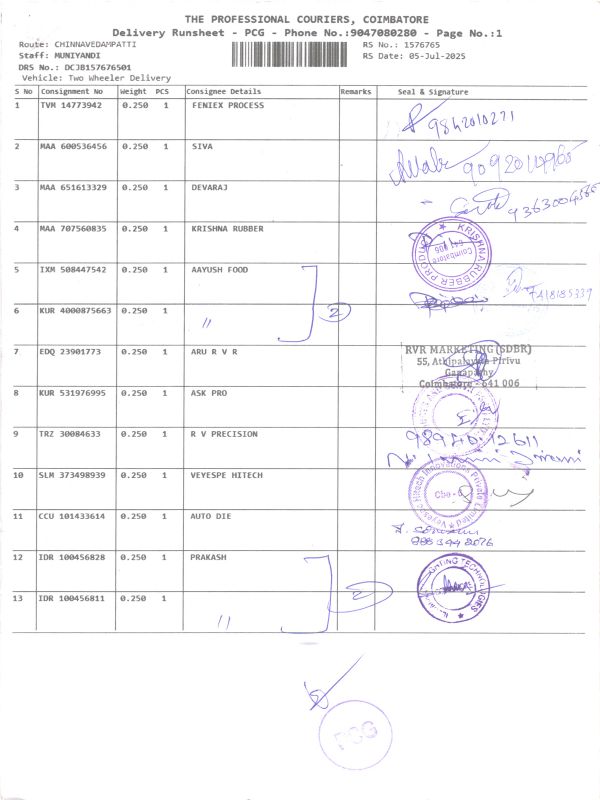 THE PROFESSIONAL COURIERS, COIMBATORE
Delivery Runsheet - PCG - Phone No.:9047080280 - Page No.:1
Route: CHINNAVEDAMPATTI
RS No.: 1576765
Staff: MUNIYANDI
RS Date: 05-Jul-2025
DRS No.: DCJB157676501
Vehicle: Two Wheeler Delivery
S No Consignment No Weight PCS Consignee Details Remarks Seal & Signature
1 TVM 14773942 0.250 1 FENIEX PROCESS
9842010271
2 MAA 600536456 0.250 1 SIVA
3 MAA 651613329 0.250 1 DEVARAJ
4 MAA 707560835 0.250 1 KRISHNA RUBBER
KRISHNA RUBBER PRODUCTS
Coimbatore
5 IXM 508447542 0.250 1 AAYUSH FOOD
7418185339
6 KUR 4000875663 0.250 1 " 2
7 EDQ 23901773 0.250 1 ARU R V R
RVR MARKETING (SDBR)
55, Athipalayam Pirivu
Ganapathy
Coimbatore - 641 006
8 KUR 531976995 0.250 1 ASK PRO
9 TRZ 30084633 0.250 1 R V PRECISION
10 SLM 373498939 0.250 1 VEYESPE HITECH
Hitech Innovations Private Limited
11 CCU 101433614 0.250 1 AUTO DIE
12 IDR 100456828 0.250 1 PRAKASH
TECHNOLOGIES
13 IDR 100456811 0.250 1 " 2
PCG